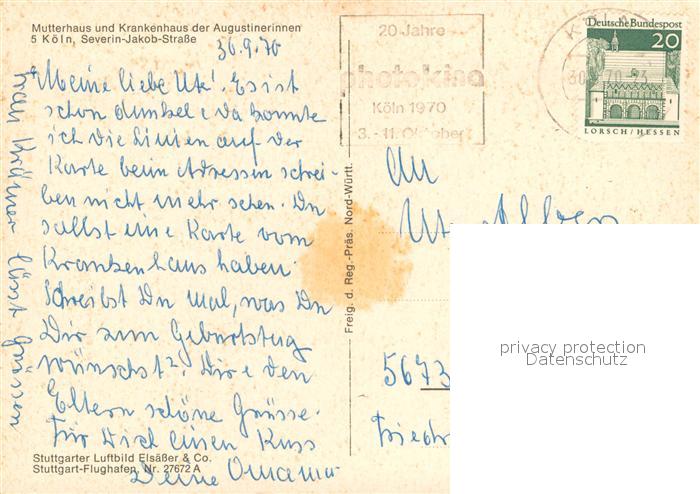 Mutterhaus und Krankenhaus der Augustinerinnen
5 Köln, Severin-Jakob-Straße
30.9.70
Meine liebe Ute! Es ist
schon dunkel & da konnte
ich die Linien auf der
Karte beim Adressen schrei-
ben nicht mehr sehen. Du
sollst eine Karte vom
Krankenhaus haben.
Schreibst Du mal, was Du
Dir zum Geburtstag
wünschst? Dir & den
Eltern schöne Grüsse.
Für Dich einen Kuss
Deine Omama
Frau Krämer lässt Grüssen
Stuttgarter Luftbild Elsäßer & Co.
Stuttgart-Flughafen, Nr. 27672 A
Freig. d. Reg.-Präs. Nord-Württ.
20 Jahre
photokina
Köln 1970
3. - 11. Oktober
KÖLN
30. 70-23
Deutsche Bundespost
20
LORSCH/HESSEN
An
Ute
5673
Friedr
privacy protection
Datenschutz